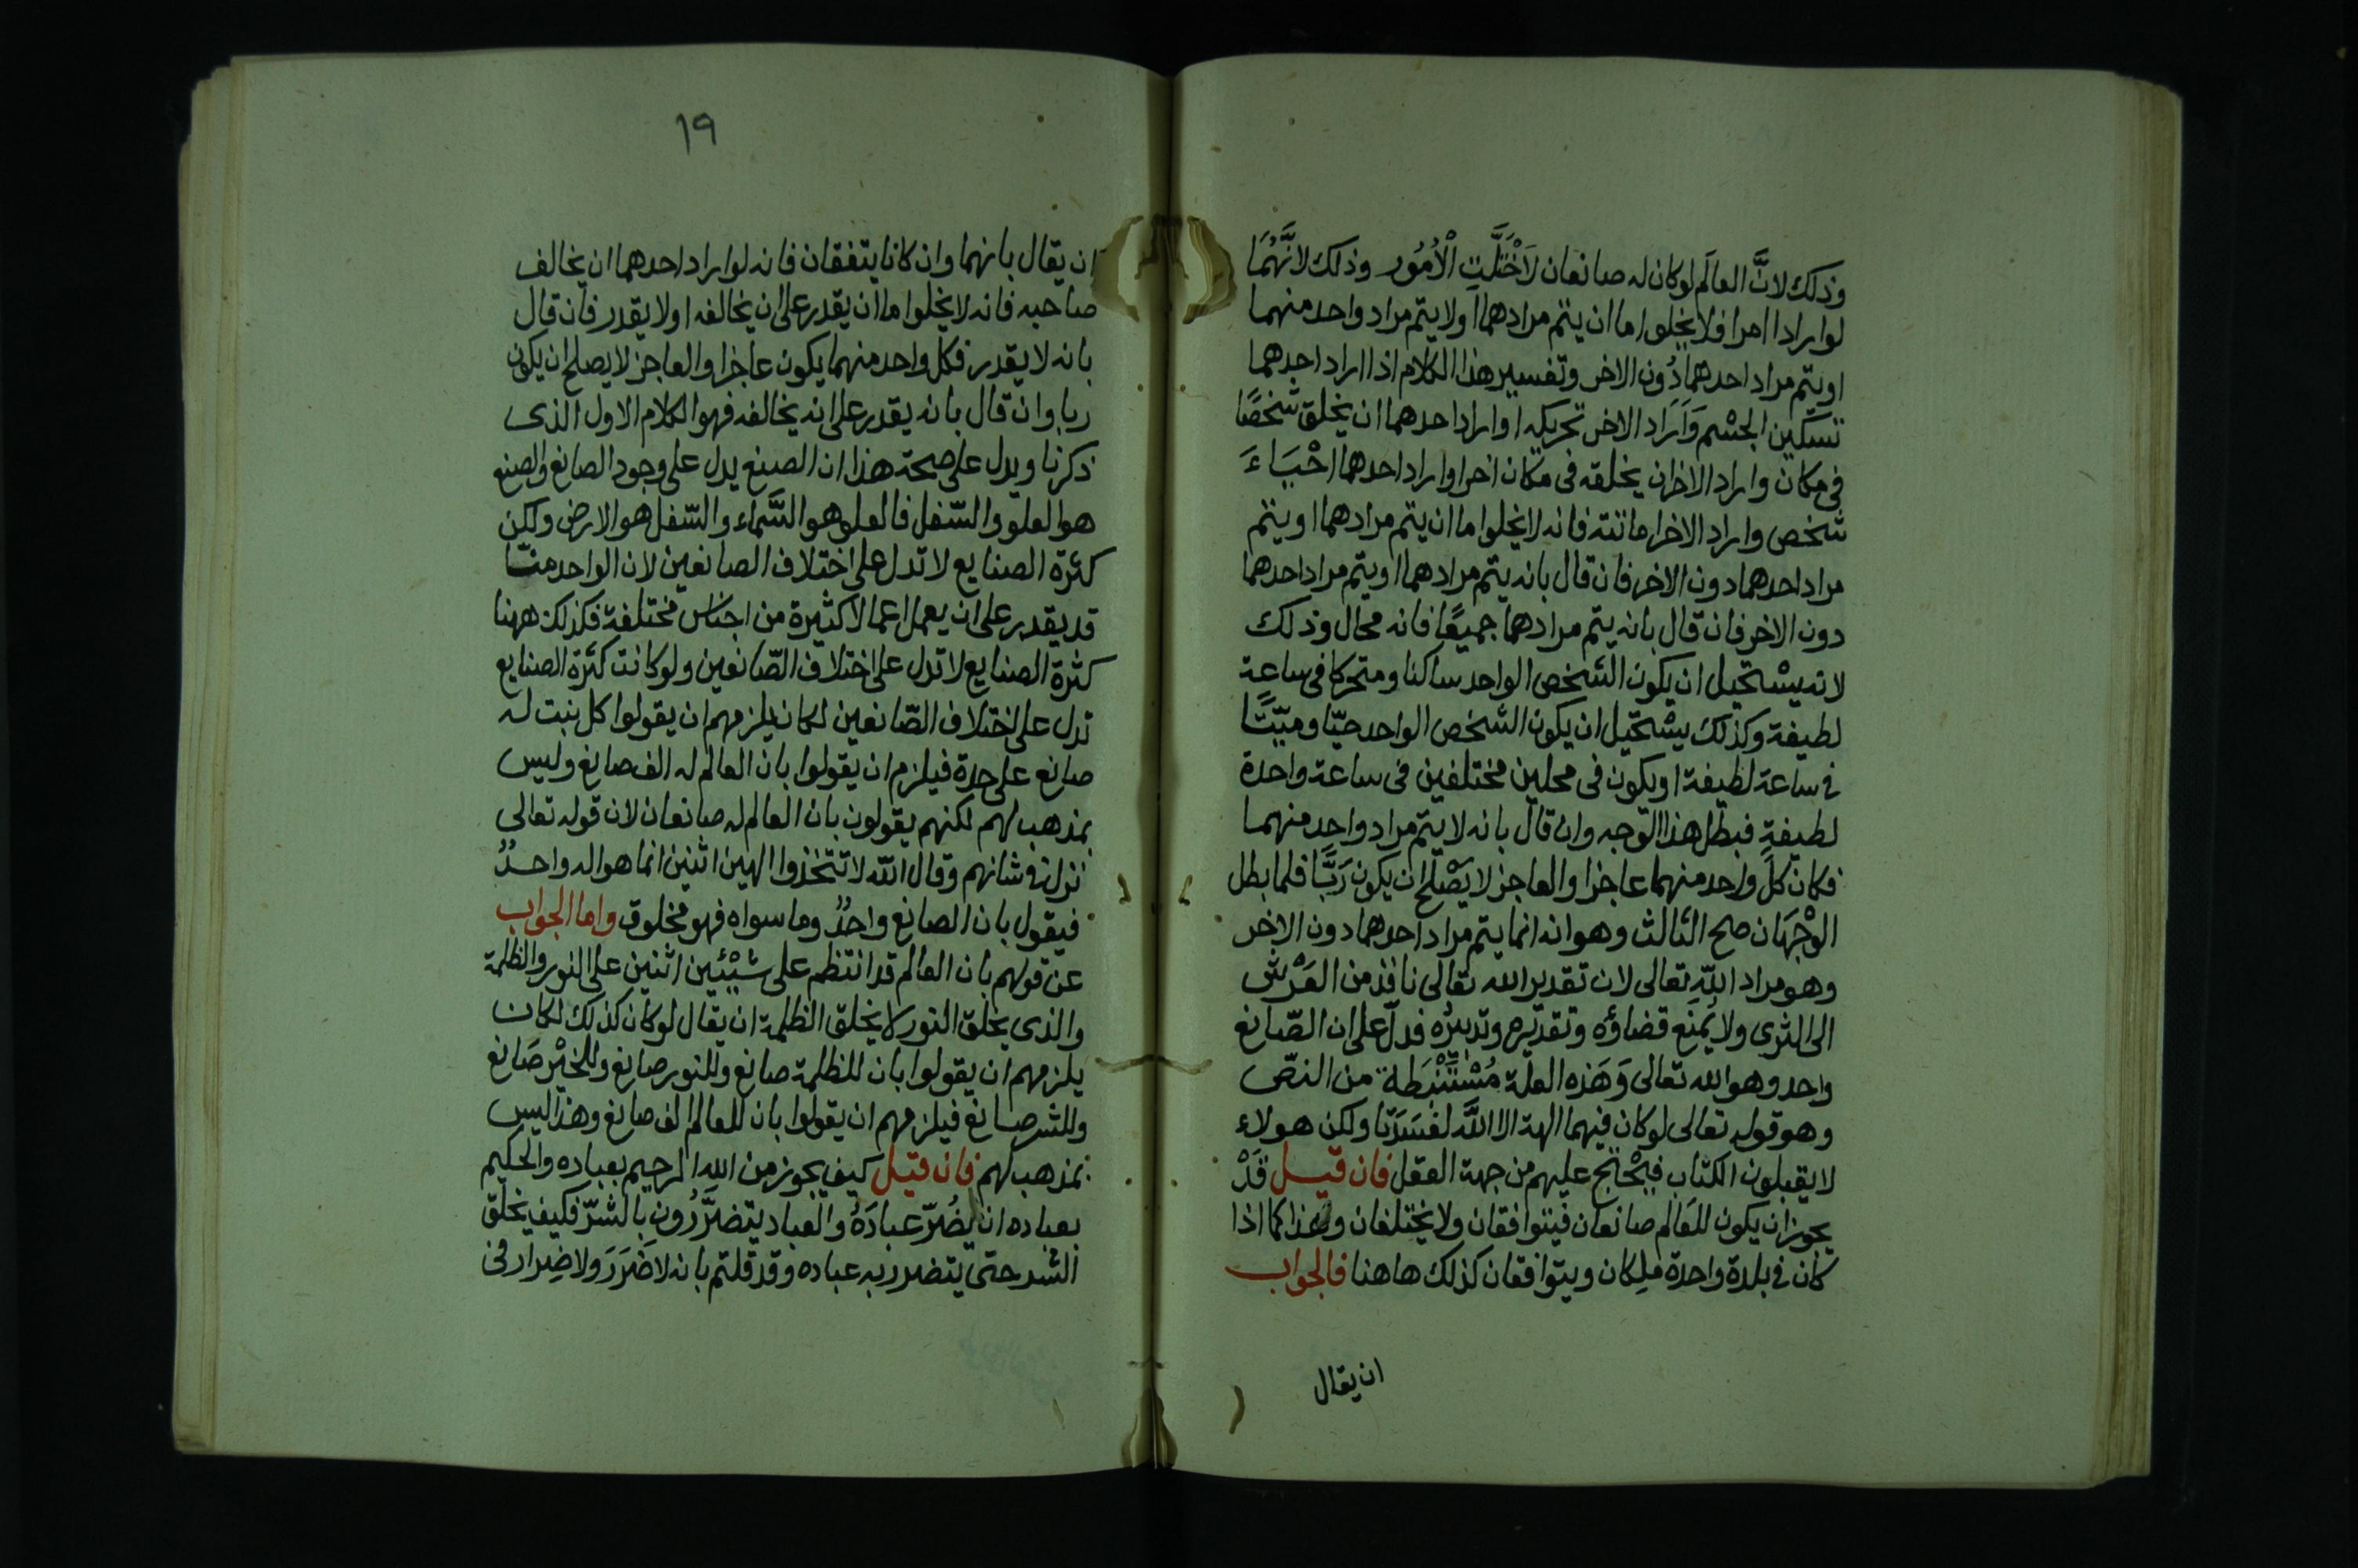 وذلك لانَّ العالَم لوكان له صانعان لاَخْتَلَّتِ الْاُمُور وذلك لانَّهُمَا
لوارادا امرا فلا يخلوا اما ان يتم مرادهما اولايتم مراد واحد منهما
اويتم مراد احدهما دُون الاخر وتفسير هذا الكلام اذا اراد احدهما
تسكين الجسْم وَاَرَاد الاخر تحريكه اواراد احدهما ان يخلق شخصًا
فى مكان واراد الاخران يخلقه فى مكان اخراواراد احدهما احْيَاءَ
شخص واراد الاخراماتته فانه لايخلوا ما ان يتم مرادهما اويتم
مراد احدهما دون الاخر فان قال بانه يتم مرادهما اويتم مراد احدهما
دون الاخر فان قال بانه يتم مرادهما جميعًا فانه محال وذلك
لانه يسْتحيل ان يكون الشخص الواحد ساكنا ومتحركا فى ساعة
لطيفة وكذلك يسْتحيل ان يكون الشخص الواحد حيّا وميّتًا
فى ساعة لطيفة اويكون فى محلين مختلفين فى ساعة واحدة
لطيفةٍ فبطل هذا الوجه وان قال بانه لايتم مراد واحد منهما
فكان كل واحد منهما عاجزا والعاجز لا يَصْلح ان يكون رَبًّا فلما بطل
الوَجْهَان صح الثالث وهو انه انما يتم مراد احدهما دون الاخر
وهو مراد اللّهِ تعالى لان تقدير الله تعالى نافذ من العَرْش
الى الثرى ولا يمنَع قضاؤه وتقديره وتدبيرُه فدلّ على ان الصّانع
واحد وهو الله تعالى وَهَذه العلة مُسْتَنْبَطة من النصّ
وهو قوله تعالى لوكان فيهما الهة الا اللَّه لفسَدَتا ولكن هولاء
لا يقبلون الكتاب فيحْتج عليهم من جهة العقل فان قيل قَدْ
يجوز ان يكون للعَالم صانعان فيتوافقان ولا يختلفان وهذا كما اذا
كان فى بلدة واحدة ملِكان ويتوافقان كذلك هاهنا فالجواب
ان يقال
١٩
ان يقال بانهما وان كانا يتفقان فانه لواراد احدهما ان يخالف
صاحبه فانه لايخلوا ما ان يقدر على ان يخالفه اولا يقدر فان قال
بانه لا يقدر فكل واحد منهما يكون عاجزا والعاجز لا يصلح ان يكون
ربا وان قال بانه يقدر على انه يخالفه فهو الكلام الاول الذى
ذكرنا ويدل على صحة هذا ان الصنع يدل على وجود الصانع والصنع
هو العلو والسّفل فالعلو هو السَّماء والسّفل هو الارض ولكن
كثرة الصنايع لا تدل على اختلاف الصانعين لان الواحد منّا
قد يقدر على ان يعمل اعمالا كثيرة من اجناس مختلفة فكذلك ههنا
كثرة الصنايع لا تدل على اختلاف الصّانعين ولو كانت كثرة الصنايع
تدل على اختلاف الصّانعين لكان يلزمهم ان يقولوا كل نبت له
صانع على حدة فيلزم ان يقولوا بان العالم له الف صانع وليس
بمذهب لهم لكنهم يقولون بان العالم له صانعان لان قوله تعالى
نزلت فى شانهم وقال اللّه لا تتخذوا الهين اثنين انما هو اله واحدٌ
فيقول بان الصانع واحدٌ وما سواه فهو مخلوق واما الجواب
عن قولهم بان العالم قد انتظم على شيْئين اثنين على النور والظلمة
والذى يخلق النور لا يخلق الظلمة ان يقال لوكان كذلك لكان
يلزمهم ان يقولوا بان للظلمة صانع وللنور صانع وللخيْر صَانع
وللشر صانع فيلزمهم ان يقولوا بان للعالم الف صانع وهذا ليس
بمذهب لهم فان قيل كيف يجوز من الله الرحيم بعباده والحكيم
بعباده ان يضُرّ عبادَهُ والعباد يتضرَّرُون بالشرّ فكيف يخلق
الشر حتى يتضرر به عباده وقد قلتم بانه لا ضَرَرَ ولا ضِرار فى